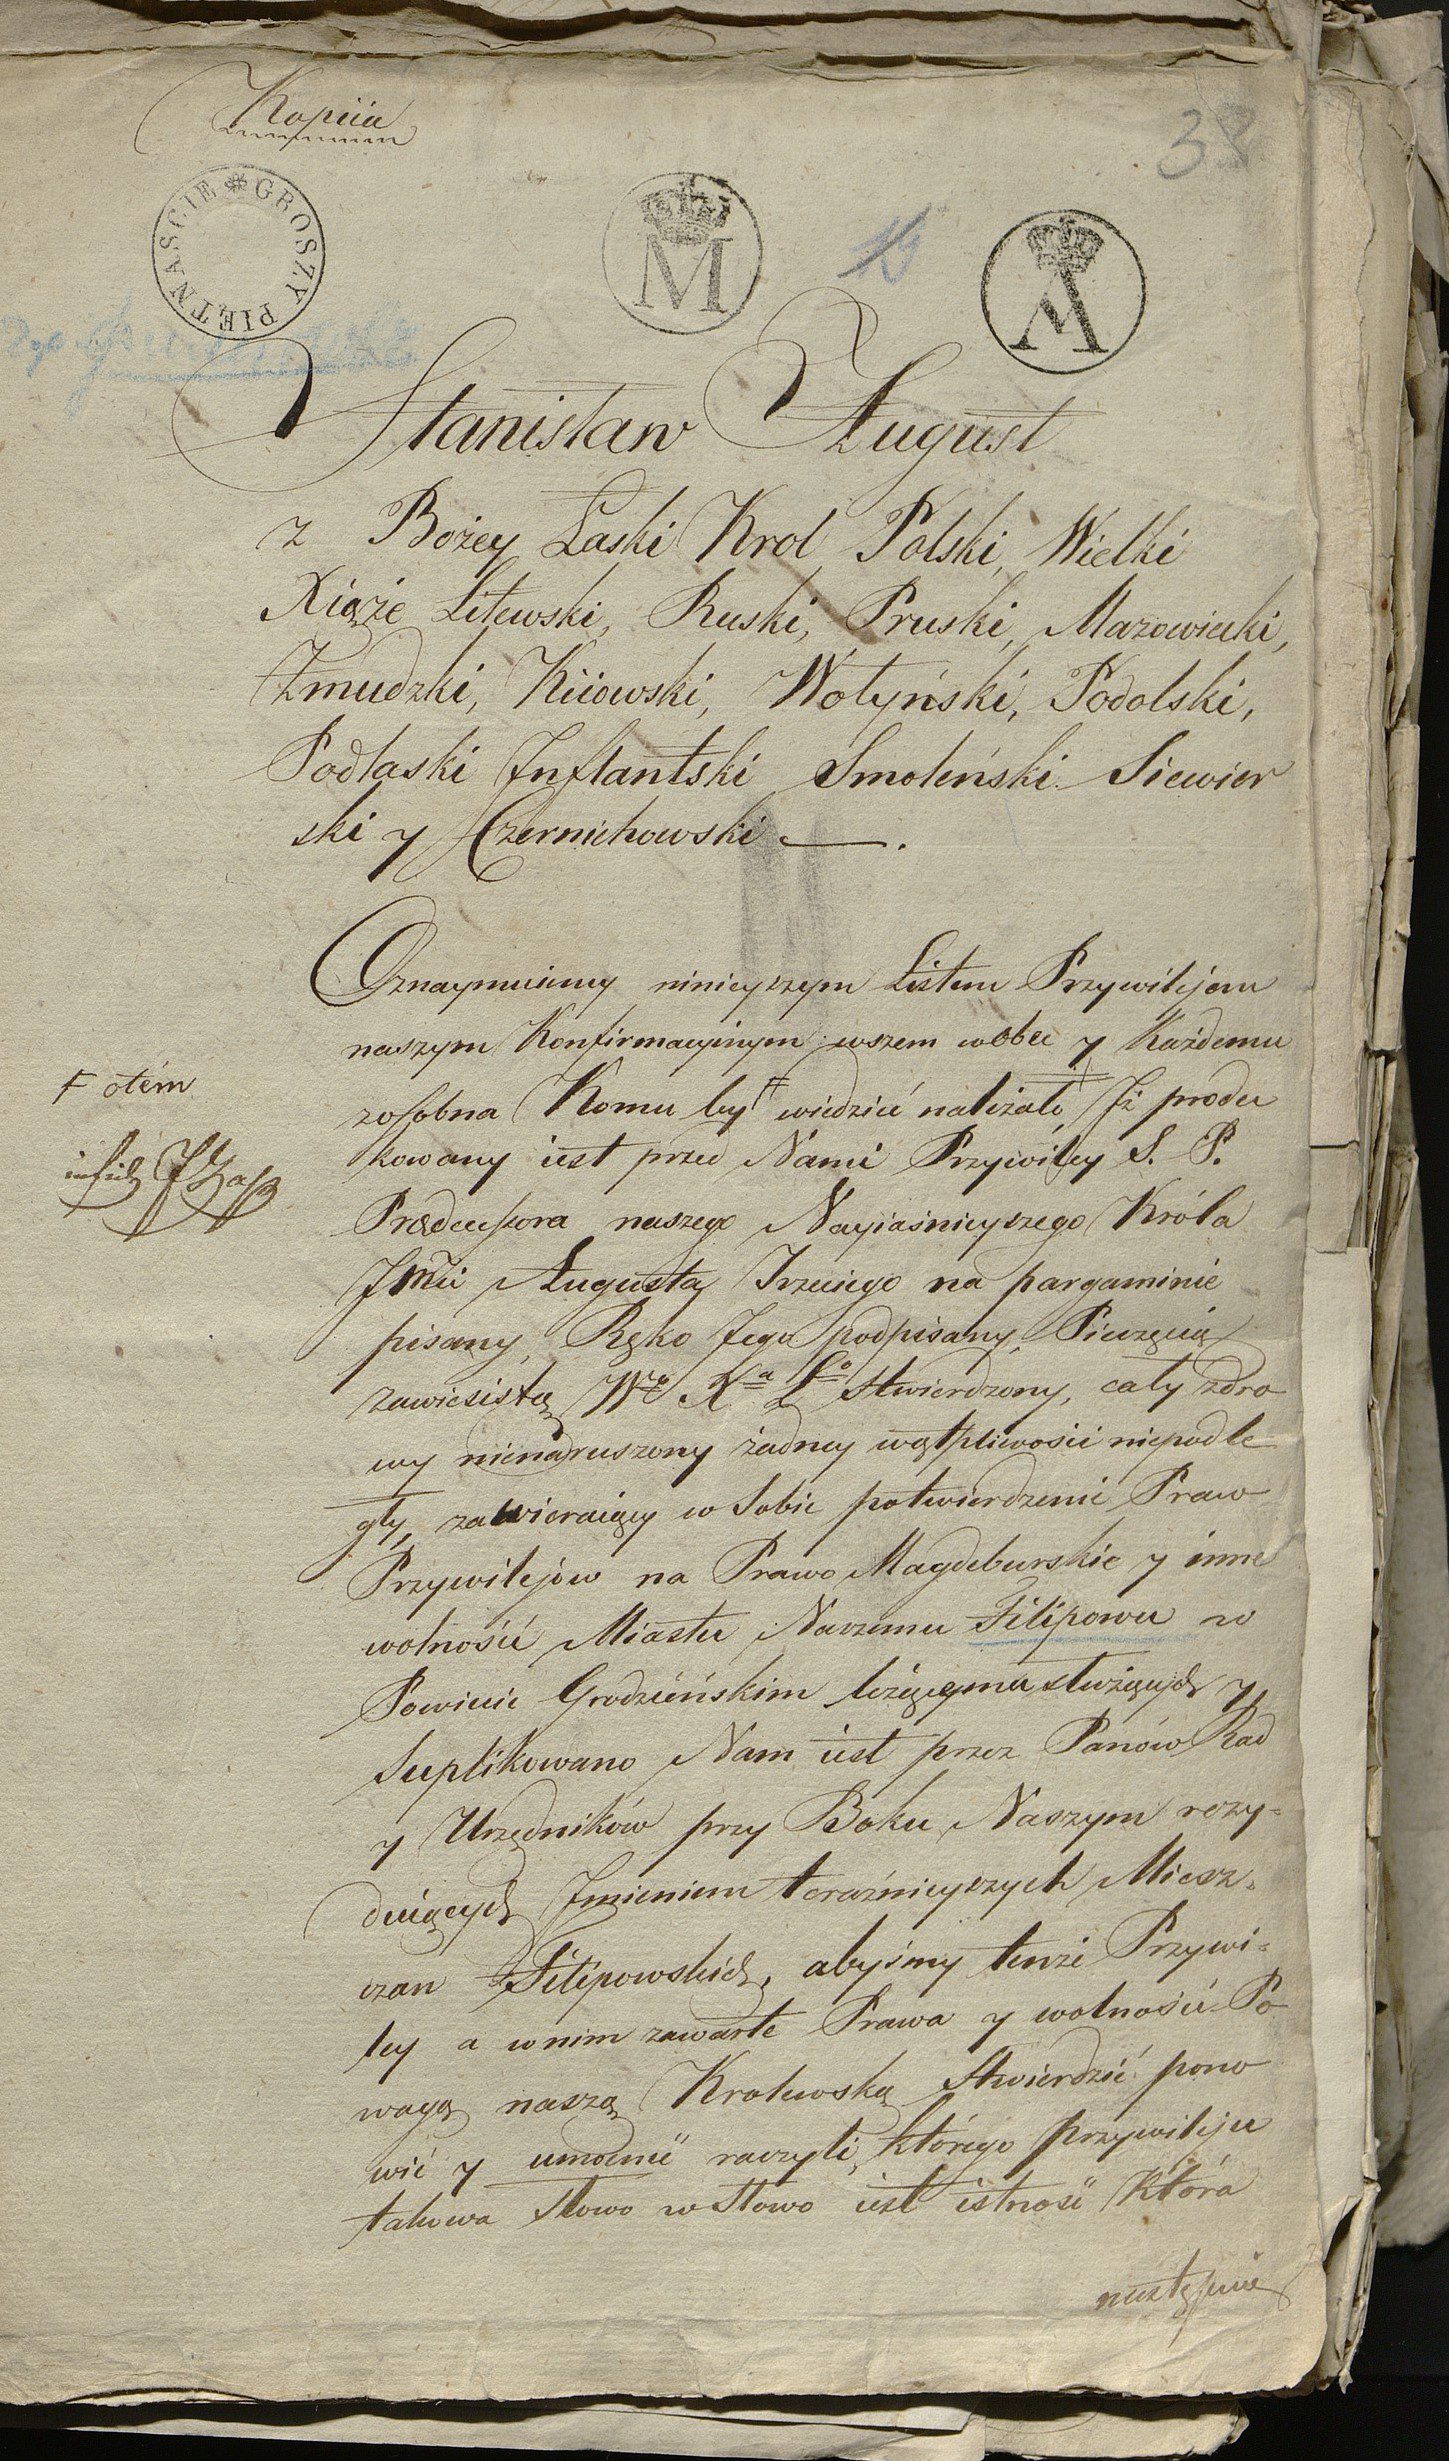 Kopiia
38
GROSZY PIĘTNAŚCIE
M
A
Stanisław August
z Bożey Łaski Krol Polski, Wielki
Xiąże Litewski, Ruski, Pruski, Mazowiecki,
Żmudzki, Kiiowski, Wołyński, Podolski,
Podlaski Inflantski Smoleński Siewier
ski y Czernichowski —.
Oznaymuiemy ninieyszym Listem Przywilejem
naszym Konfirmacyinym wszem wobec y Każdemu
zosobna Komu by wiedzieć należało Iż produ
kowany iest przed Nami Przywiley S. P.
Prædecessora naszego Nayiaśnieyszego Króla
Jmći Augusta Trzeciego na pargaminie
pisany, Ręko Jego podpisany, Pieczęcią
zawiesistą Wgo Xa Lo stwierdzony, cały zdro
wy nienaruszony żadney wątpliwości niepodle
gły, zawieraiący w Sobie potwierdzenie Praw
Przywilejów na Prawo Magdeburskie y inne
wolność Miastu Naszemu Filipowu w
Powiecie Grodzieńskim leżącemu służących y
Suplikowano Nam iest przez Panów Rad
y Urzędników przy Boku Naszym rezy-
duiących Imieniem teraźnieyszych Miesz-
czan Filipowskich, abyśmy tenże Przywi-
ley a wnim zawarte Prawa y wolność Po
wagą naszą Krolewską Stwierdzić pono
wić y umocnić raczyli, którego przywileju
takowa słowo w słowo iest istność która
następuie
F otém